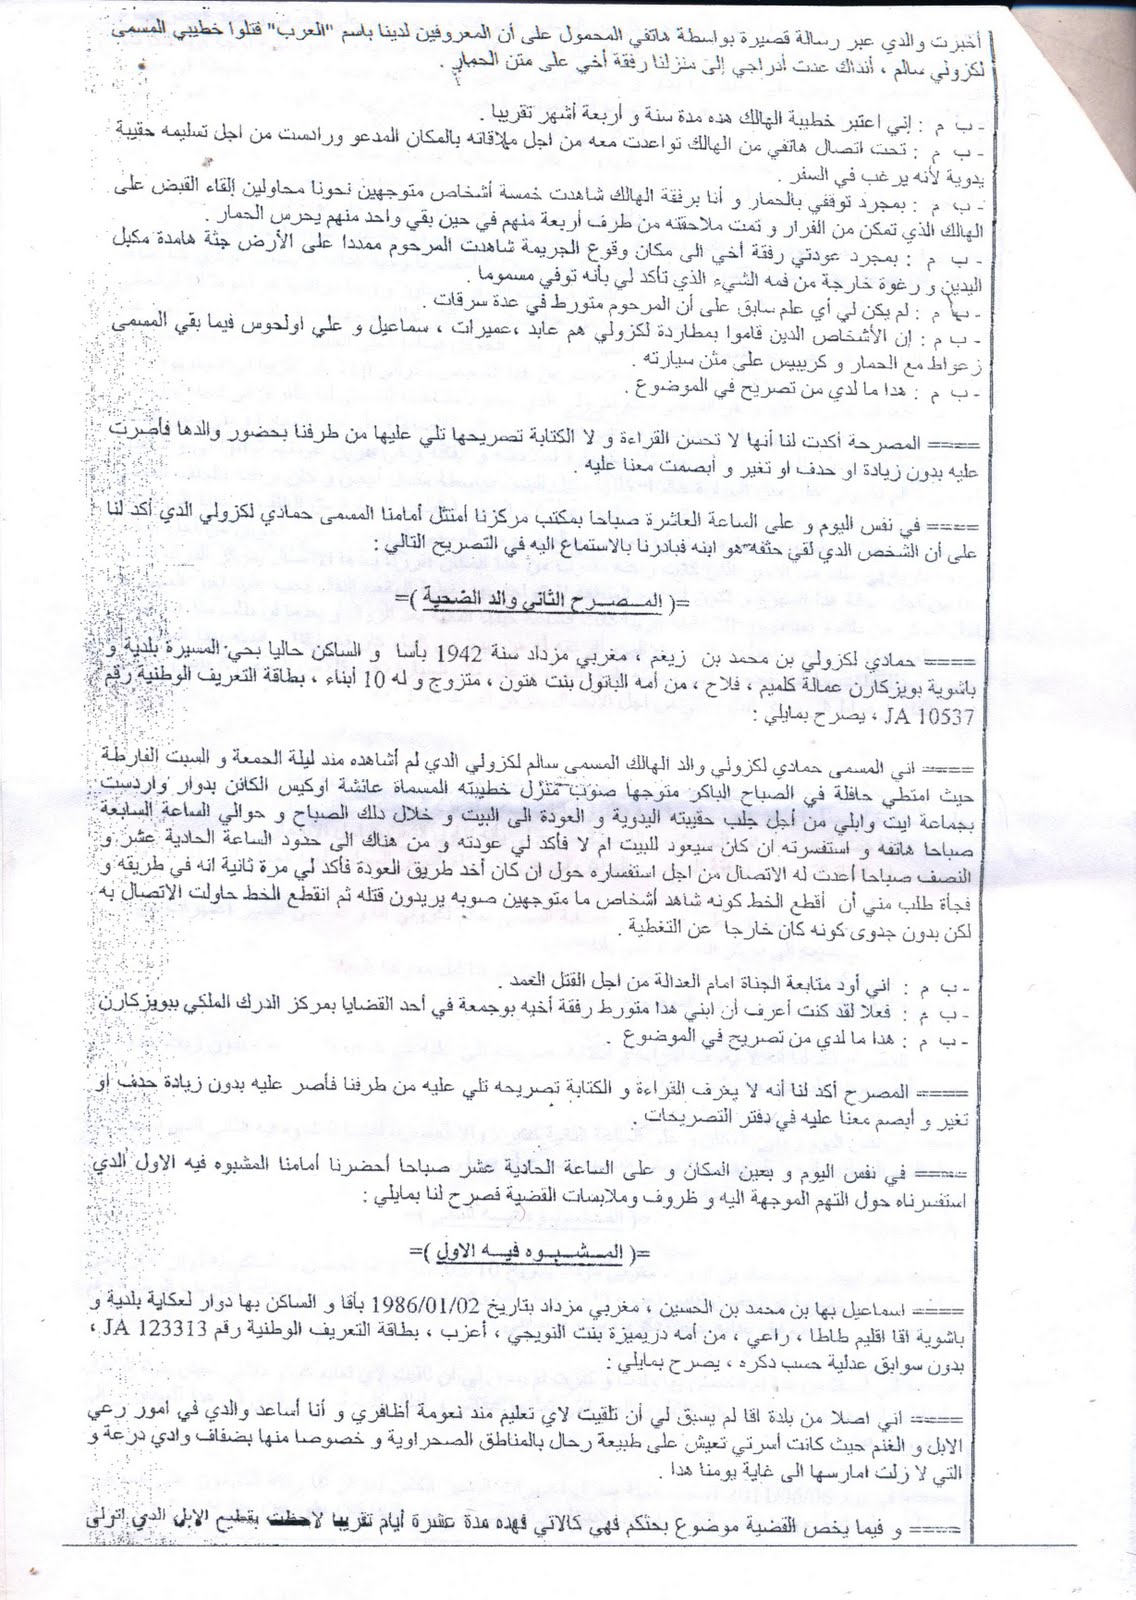 أخبرت والدي عبر رسالة قصيرة بواسطة هاتفي المحمول على أن المعروفين لدينا باسم "العرب" قتلوا خطيبي المسمى
لكزولي سالم ، أنذاك عدت أدراجي إلى منزلنا رفقة أخي على متن الحمار .
- ب م : إني اعتبر خطيبة الهالك هده مدة سنة و أربعة أشهر تقريبا .
- ب م : تحت اتصال هاتفي من الهالك تواعدت معه من اجل ملاقاته بالمكان المدعو ورادست من اجل تسليمه حقيبة
يدوية لأنه يرغب في السفر .
- ب م : بمجرد توقفي بالحمار و أنا برفقة الهالك شاهدت خمسة أشخاص متوجهين نحونا محاولين إلقاء القبض على
الهالك الذي تمكن من الفرار و تمت ملاحقته من طرف أربعة منهم في حين بقي واحد منهم يحرس الحمار .
- ب م : بمجرد عودتي رفقة أخي الى مكان وقوع الجريمة شاهدت المرحوم ممددا على الأرض جثة هامدة مكبل
اليدين و رغوة خارجة من فمه الشيء الذي تأكد لي بأنه توفي مسموما .
- ب م : لم يكن لي أي علم سابق على أن المرحوم متورط في عدة سرقات .
- ب م : إن الأشخاص الدين قاموا بمطاردة لكزولي هم عابد ،عميرات ، سماعيل و علي اولحوس فيما بقي المسمى
زعواط مع الحمار و كريبيس على مثن سيارته .
- ب م : هدا ما لدي من تصريح في الموضوع .
==== المصرحة أكدت لنا أنها لا تحسن القراءة و لا الكتابة تصريحها تلي عليها من طرفنا بحضور والدها فأصرت
عليه بدون زيادة او حدف او تغير و أبصمت معنا عليه .
==== في نفس اليوم و على الساعة العاشرة صباحا بمكتب مركزنا أمتثل أمامنا المسمى حمادي لكزولي الدي أكد لنا
على أن الشخص الدي لقي حثفه هو ابنه فبادرنا بالاستماع اليه في التصريح التالي :
=( المـصـرح الثاني والد الضحية )=
==== حمادي لكزولي بن محمد بن زيعم ، مغربي مزداد سنة 1942 بأسا و الساكن حاليا بحي المسيرة بلدية و
باشوية بويزكارن عمالة كلميم ، فلاح ، من أمه الباتول بنت هتون ، متزوج و له 10 أبناء ، بطاقة التعريف الوطنية رقم
JA 10537 ، يصرح بمايلي :
==== اني المسمى حمادي لكزولي والد الهالك المسمى سالم لكزولي الدي لم أشاهده مند ليلة الجمعة و السبت الفارطة
حيث امتطي حافلة في الصباح الباكر متوجها صوب منزل خطيبته المسماة عائشة اوكيس الكائن بدوار واردست
بجماعة ايت وابلي من أجل جلب حقيبته اليدوية و العودة الى البيت و خلال دلك الصباح و حوالي الساعة السابعة
صباحا هاتفه و استفسرته ان كان سيعود للبيت ام لا فأكد لي عودته و من هناك الى حدود الساعة الحادية عشر و
النصف صباحا أعدت له الاتصال من اجل استفساره حول ان كان أخد طريق العودة فأكد لي مرة ثانية انه في طريقه و
فجأة طلب مني أن أقطع الخط كونه شاهد أشخاص ما متوجهين صوبه يريدون قتله ثم انقطع الخط حاولت الإتصال به
لكن بدون جدوى كونه كان خارجا عن التغطية .
- ب م : اني أود متابعة الجناة امام العدالة من اجل القتل العمد .
- ب م : فعلا لقد كنت أعرف أن ابني هدا متورط رفقة أخيه بوجمعة في أحد القضايا بمركز الدرك الملكي ببويزكارن
- ب م : هدا ما لدي من تصريح في الموضوع .
==== المصرح أكد لنا أنه لا يعرف القراءة و الكتابة تصريحه تلي عليه من طرفنا فأصر عليه بدون زيادة حدف او
تغير و أبصم معنا عليه في دفتر التصريحات .
==== في نفس اليوم و بعين المكان و على الساعة الحادية عشر صباحا أحضرنا أمامنا المشبوه فيه الاول الدي
استفسرناه حول التهم الموجهة اليه و ظروف وملابسات القضية فصرح لنا بمايلي :
=( المـشـبـوه فيـه الاول )=
==== اسماعيل بها بن محمد بن الحسين ، مغربي مزداد بتاريخ 1986/01/02 بأقا و الساكن بها دوار لعكاية بلدية و
باشوية اقا اقليم طاطا ، راعي ، من أمه دريميزة بنت النويجي ، أعزب ، بطاقة التعريف الوطنية رقم JA 123313 ،
بدون سوابق عدلية حسب دكره ، يصرح بمايلي :
==== اني اصلا من بلدة اقا لم يسبق لي أن تلقيت لاي تعليم مند نعومة أظافري و أنا أساعد والدي في امور رعي
الابل و الغنم حيث كانت أسرتي تعيش على طبيعة رحال بالمناطق الصحراوية و خصوصا منها بضفاف وادي درعة و
التي لا زلت امارسها الى غاية يومنا هدا .
==== و فيما يخص القضية موضوع بحثكم فهي كالاتي فهده مدة عشرة أيام تقريبا لاحظت بقطيع الابل الدي اتولى